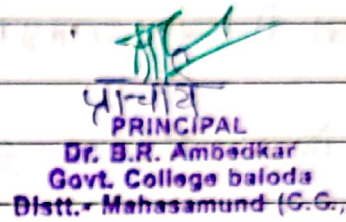 प्राचार्य
PRINCIPAL
Dr. B.R. Ambedkar
Govt. College baloda
Distt.- Mahasamund (C.G.